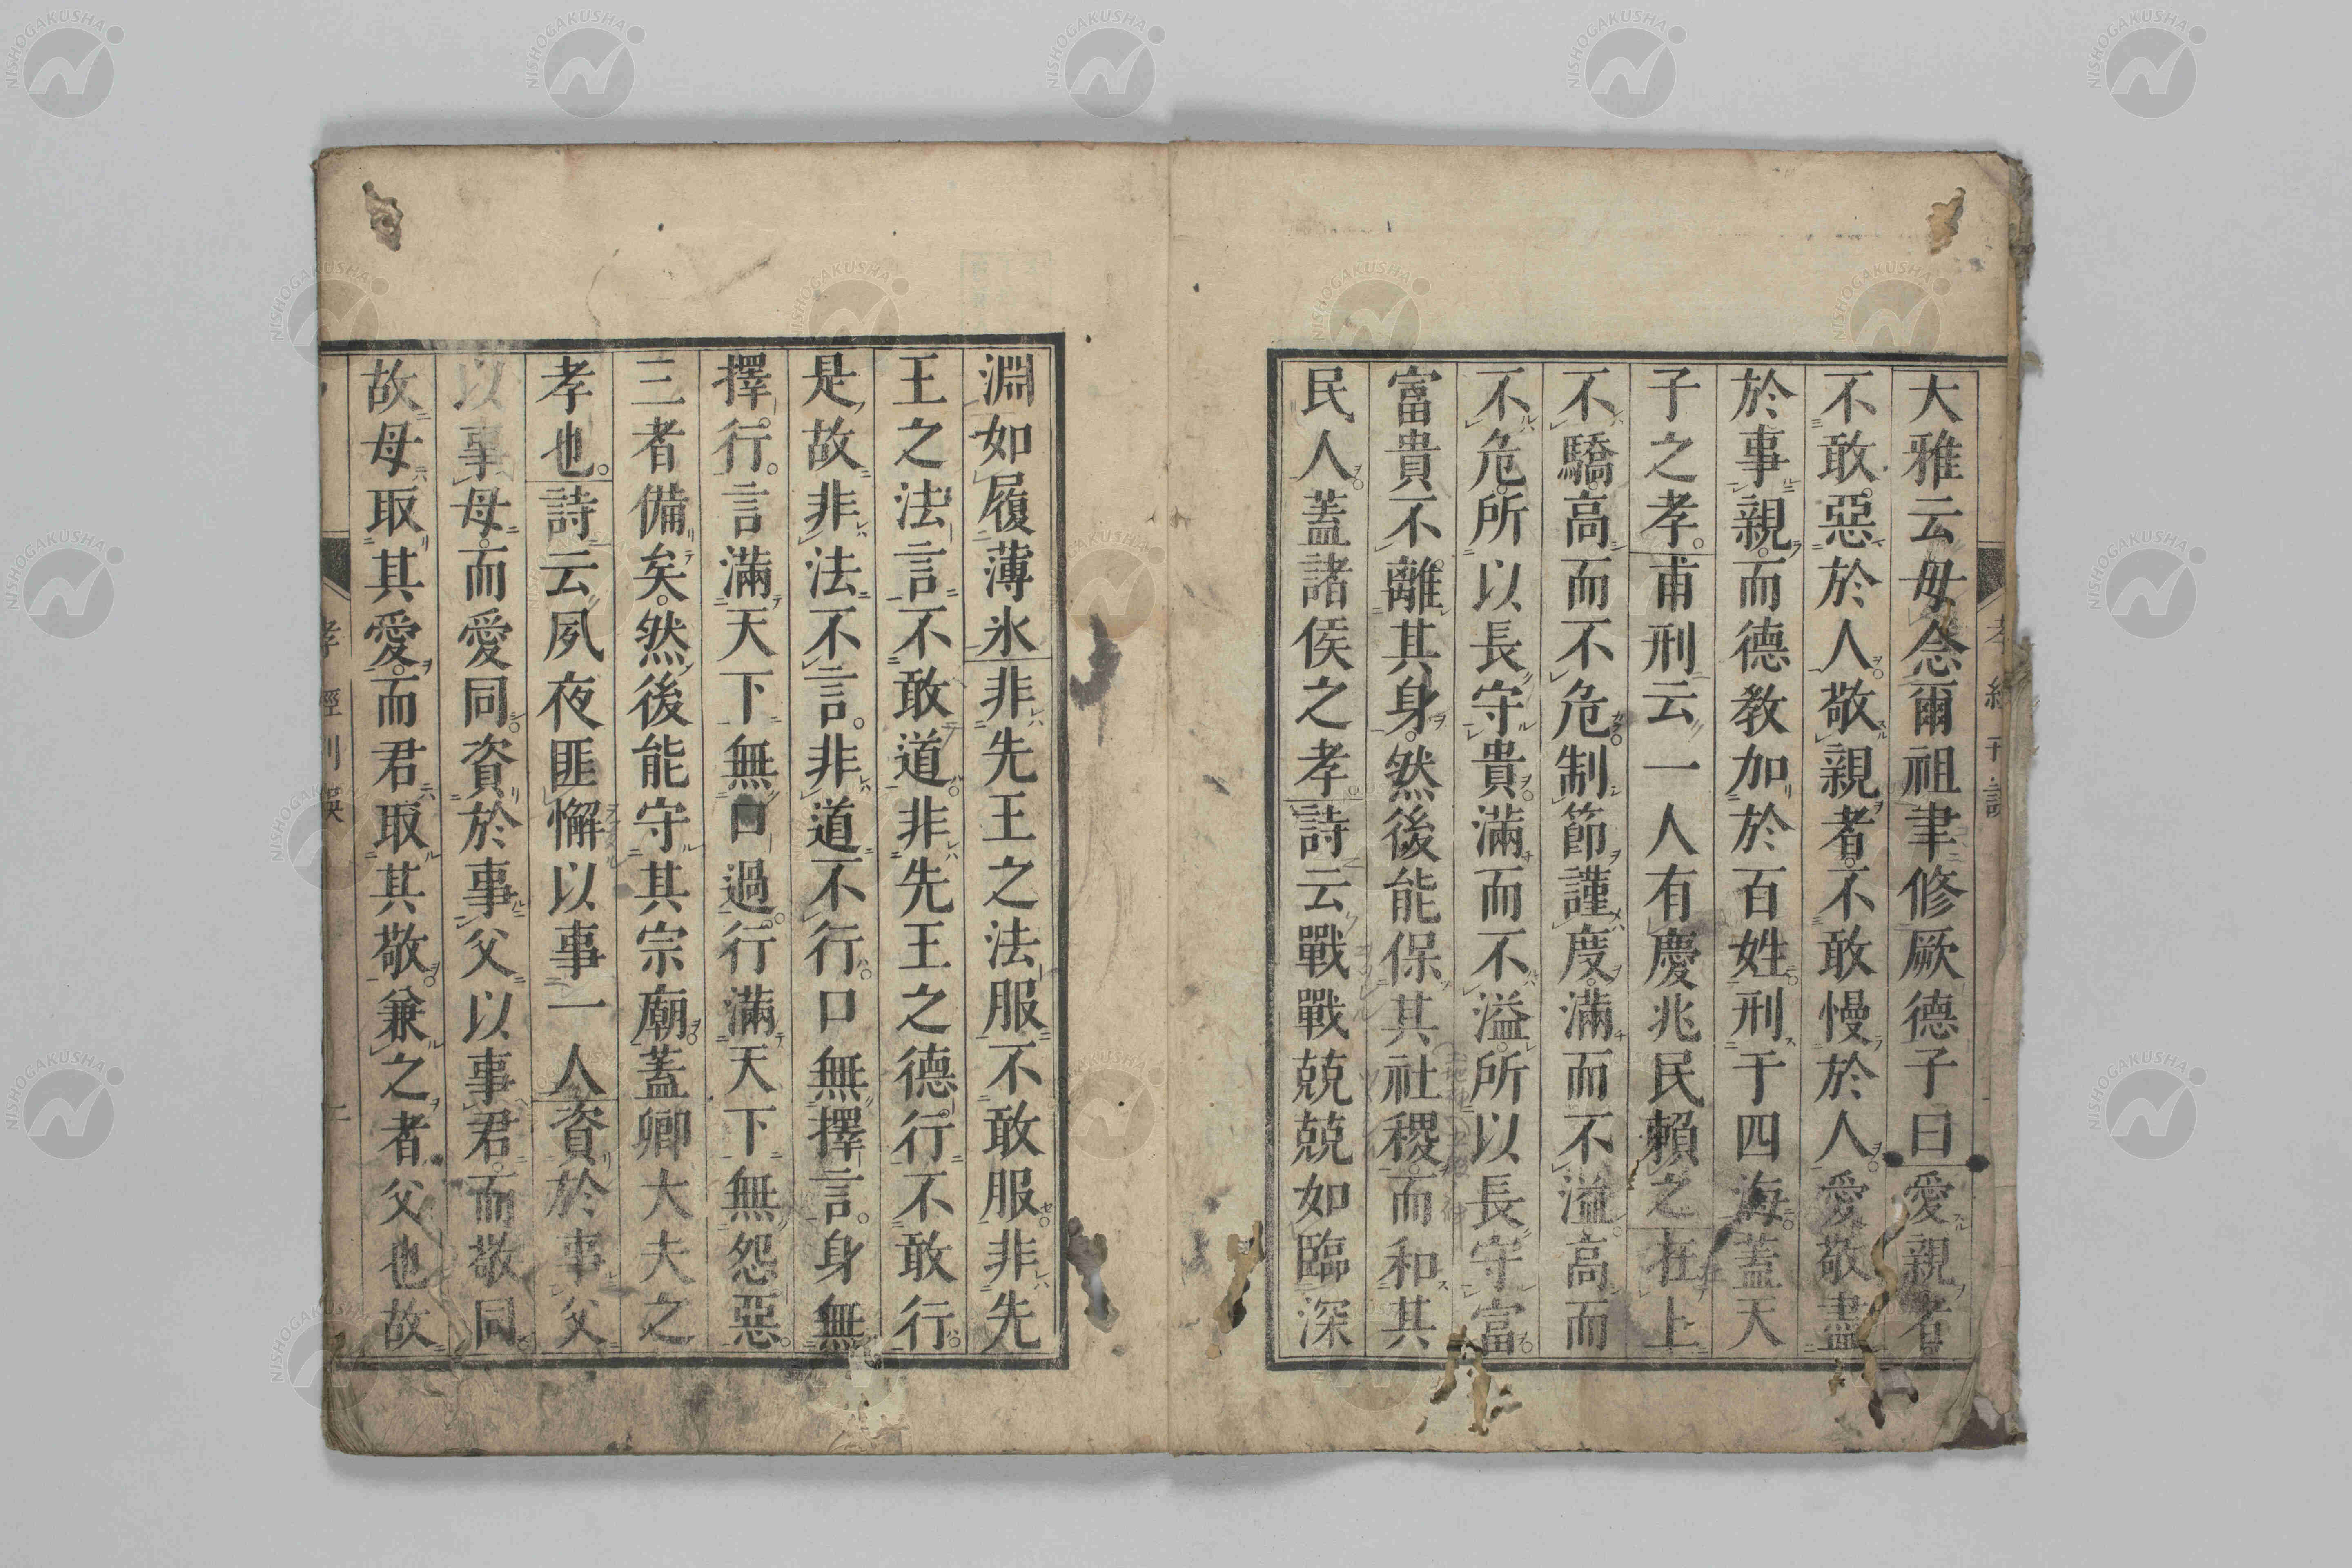 大雅云毋念爾祖聿修厥德子曰愛親者
不敢惡於人敬親者不敢慢於人愛敬盡
於事親而德教加於百姓刑于四海蓋天
子之孝甫刑云一人有慶兆民賴之在上
不驕高而不危制節謹度滿而不溢高而
不危所以長守貴滿而不溢所以長守富
富貴不離其身然後能保其社稷而和其
民人蓋諸侯之孝詩云戰戰兢兢如臨深
淵如履薄氷非先王之法服不敢服非先
王之法言不敢道非先王之德行不敢行
是故非法不言非道不行口無擇言身無
擇行言滿天下無口過行滿天下無怨惡
三者備矣然後能守其宗廟蓋卿大夫之
孝也詩云夙夜匪懈以事一人資於事父
以事母而愛同資於事父以事君而敬同
故母取其愛而君取其敬兼之者父也故
孝經刊誤
NISHOGAKUSHA